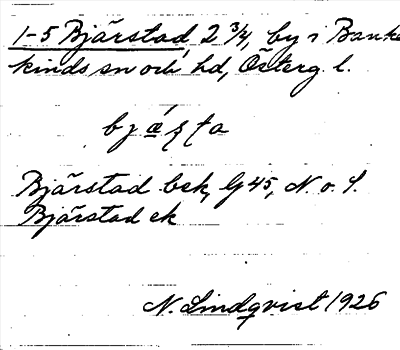 1-5 Bjärstad, 2 3/4, by i Banke
kinds sn och hd, Österg. l.
Bjärstad bsk, G 45, N. o. S.
Bjärstad ek
N. Lindqvist 1926